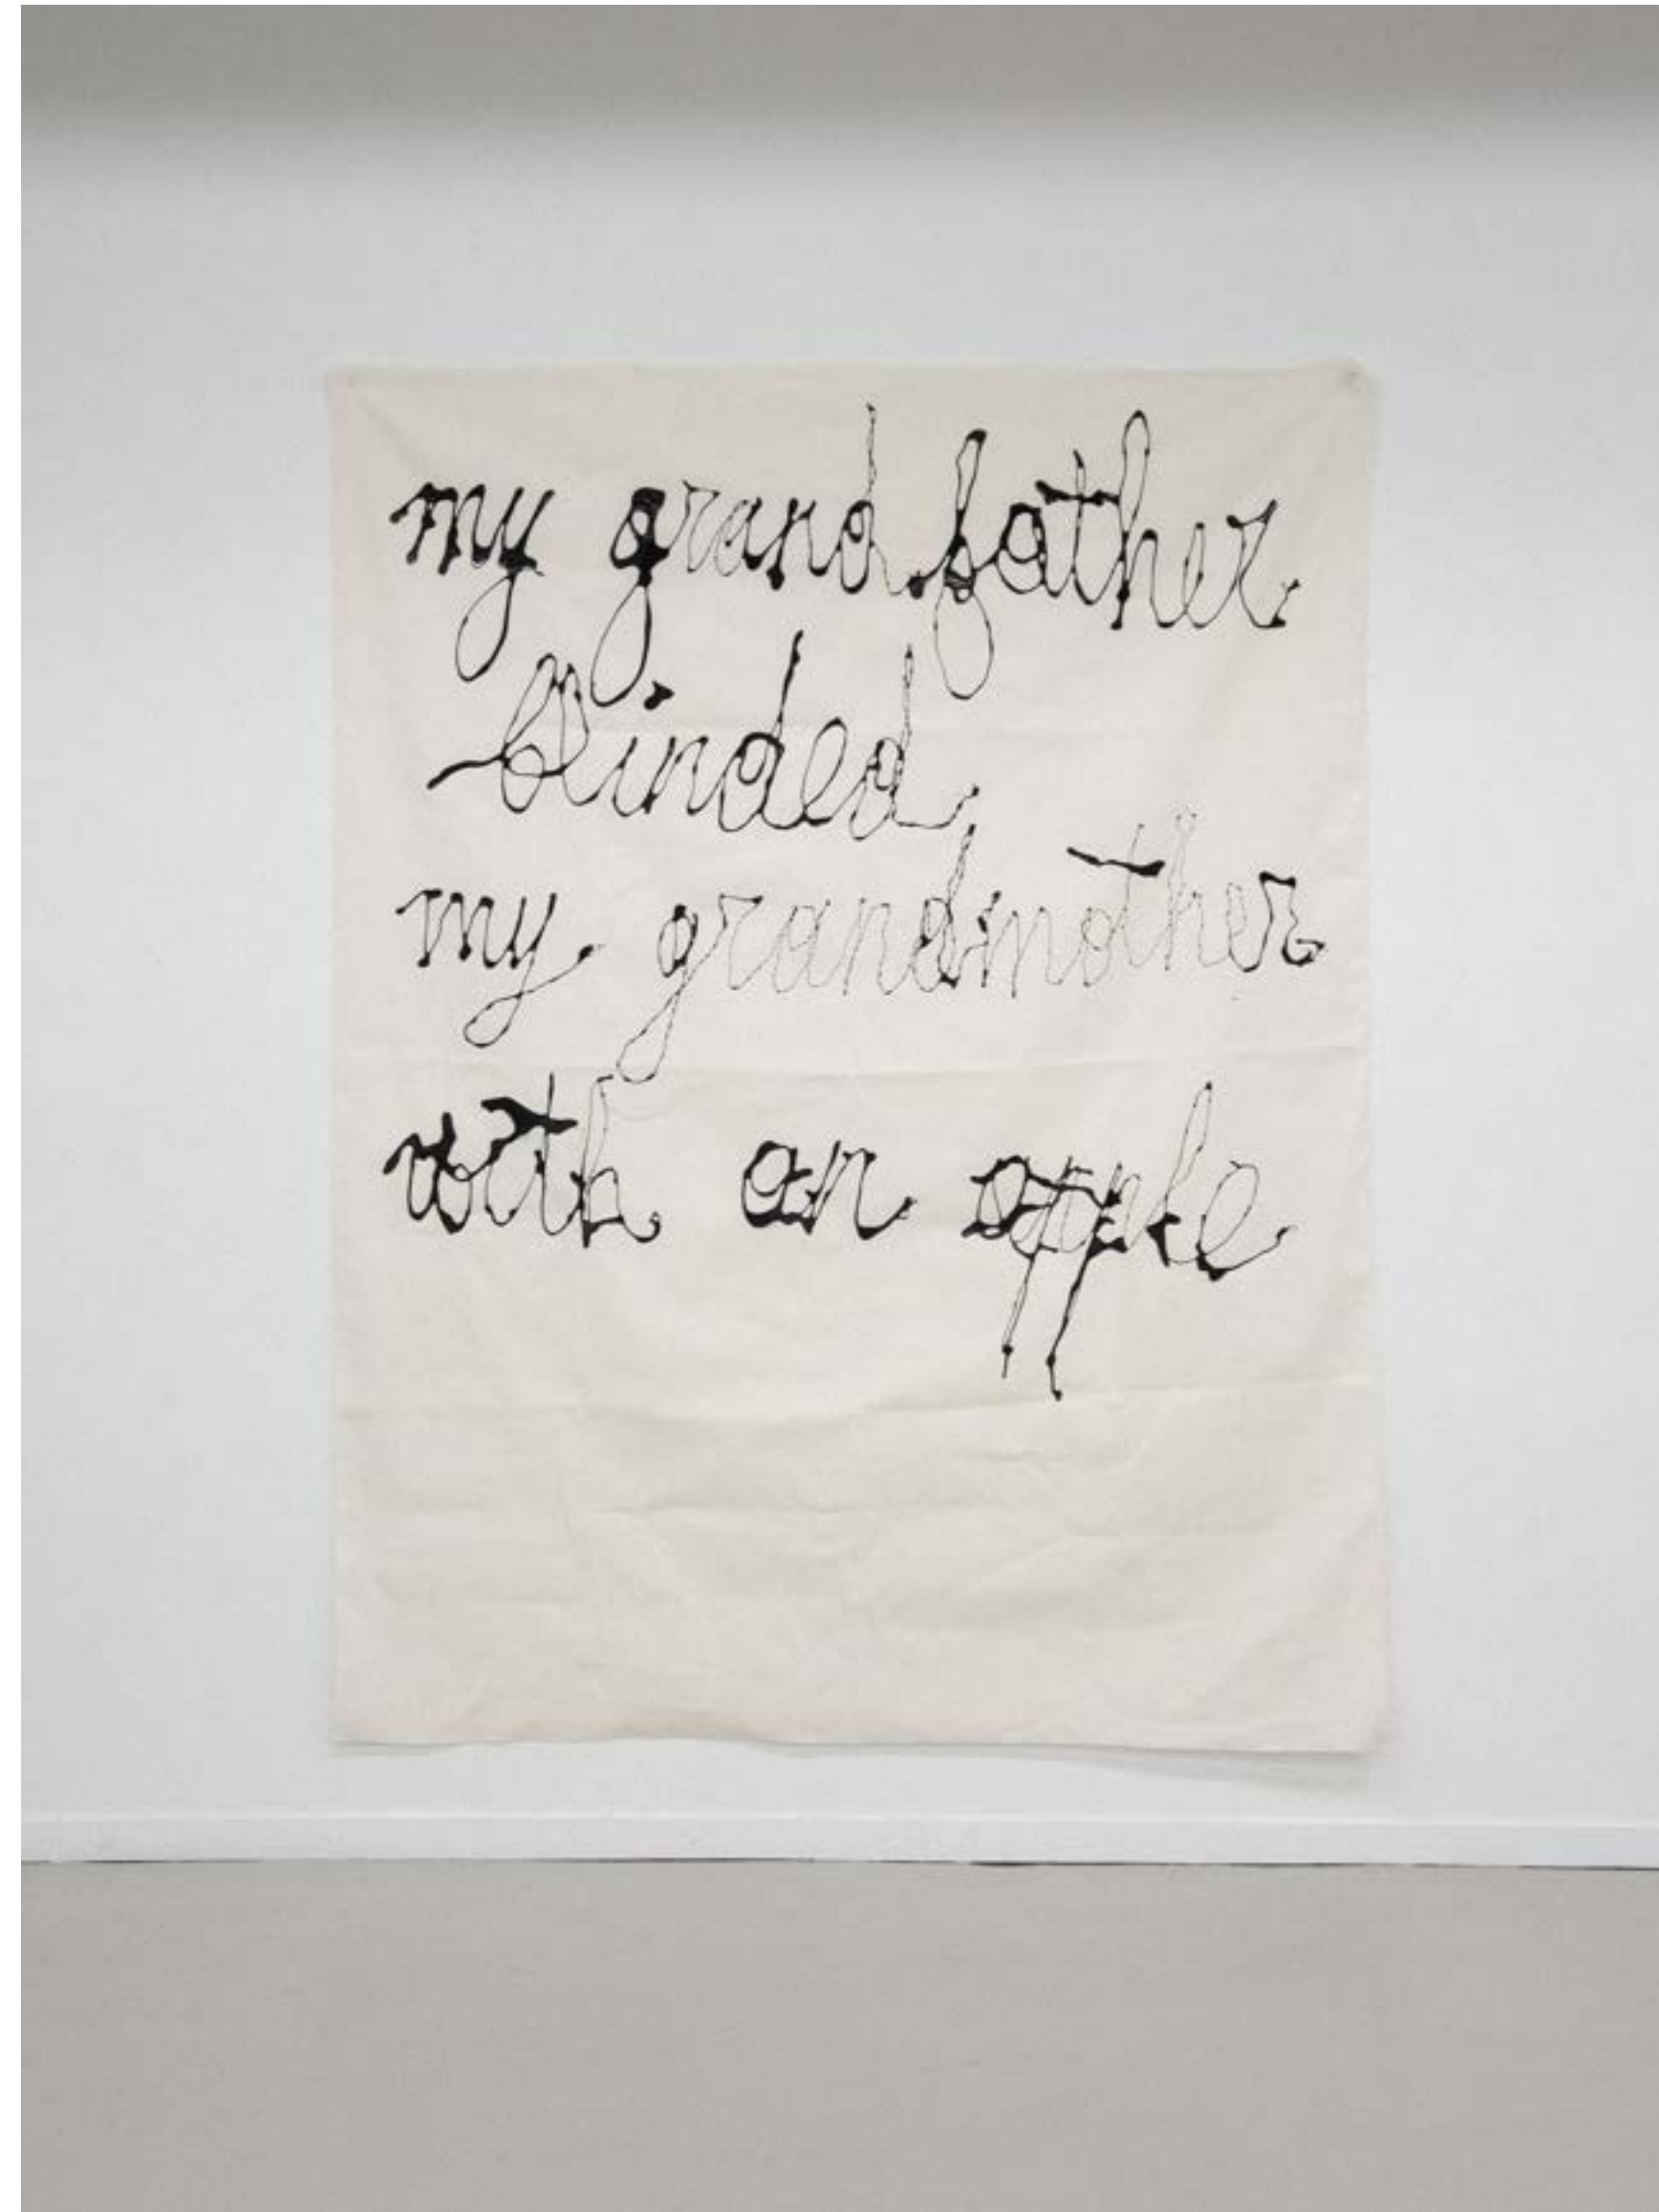 my grandfather
blinded
my grandmother
with an apple